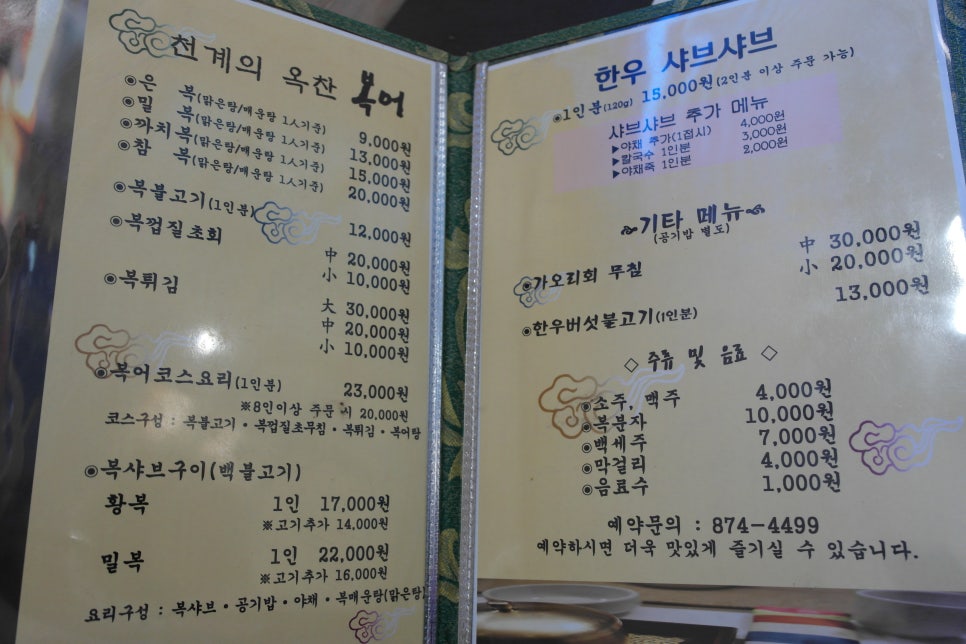 천계의 옥찬 복어
◉은 복(맑은탕/매운탕 1人기준) 9,000원
◉밀 복(맑은탕/매운탕 1人기준) 13,000원
◉까치복(맑은탕/매운탕 1人기준) 15,000원
◉참 복(맑은탕/매운탕 1人기준) 20,000원
◉복불고기(1인분) 12,000원
◉복껍질초회
中 20,000원
小 10,000원
◉복튀김
大 30,000원
中 20,000원
小 10,000원
◉복어코스요리(1인분) 23,000원
※8인이상 주문 시 20,000원
코스구성 : 복불고기・복껍질초무침・복튀김・복어탕
◉복샤브구이(백불고기)
황복 1인 17,000원
※고기추가 14,000원
밀복 1인 22,000원
※고기추가 16,000원
요리구성 : 복샤브・공기밥・야채・복매운탕(맑은탕)
한우 샤브샤브
◉1인분(120g) 15,000원(2인분 이상 주문 가능)
샤브샤브 추가 메뉴
▶야채 추가(1접시) 4,000원
▶칼국수 1인분 3,000원
▶야채죽 1인분 2,000원
기타 메뉴
(공기밥 별도)
◉가오리회 무침 中 30,000원
小 20,000원
◉한우버섯불고기(1인분) 13,000원
◇ 주류 및 음료 ◇
◉소주, 맥주 4,000원
◉복분자 10,000원
◉백세주 7,000원
◉막걸리 4,000원
◉음료수 1,000원
예약문의 : 874-4499
예약하시면 더욱 맛있게 즐기실 수 있습니다.